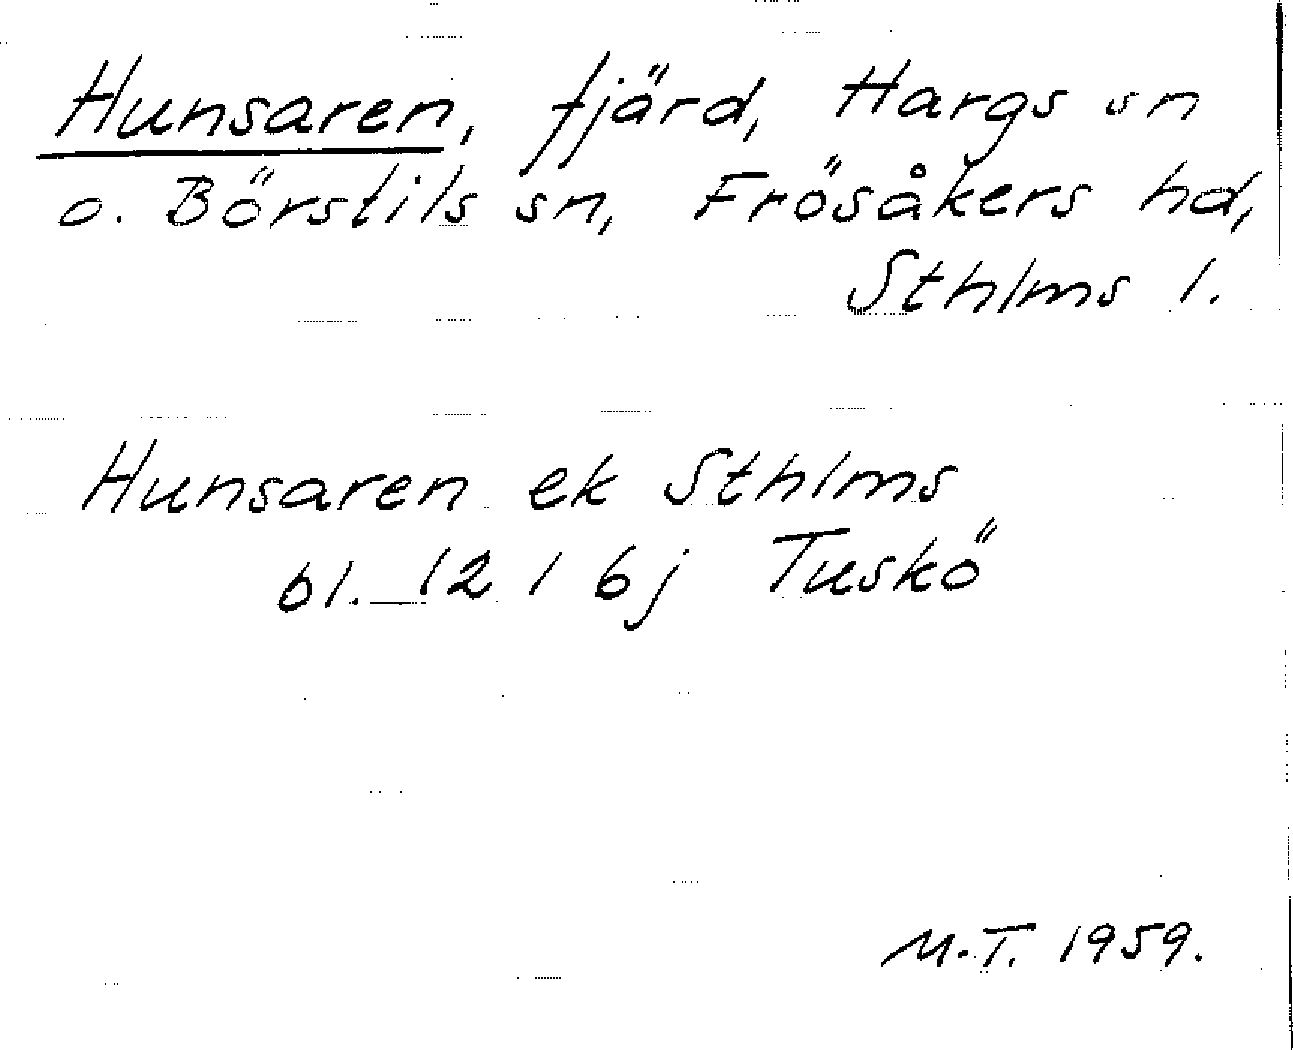 Hunsaren, fjärd, Hargs sn
o. Börstils sn, Frösåkers hd,
Sthlms l.
Hunsaren ek Sthlms
bl. 12 1 6j Tuskö
M.T. 1959.